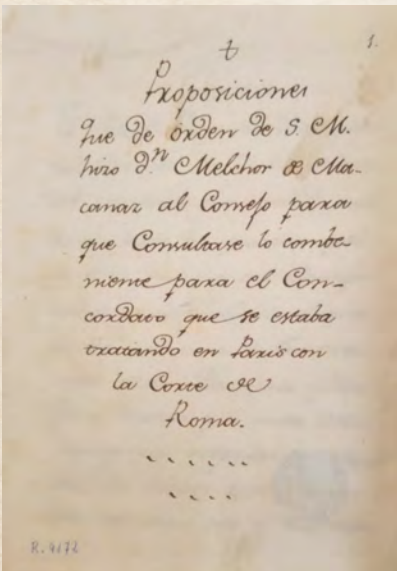 1.
Proposiciones
que de orden de S. M.
hizo d.n Melchor de Ma-
canaz al Consejo para
que Consultase lo combe-
niente para el Con-
cordato que se estaba
tratando en Paris con
la Corte de
Roma.